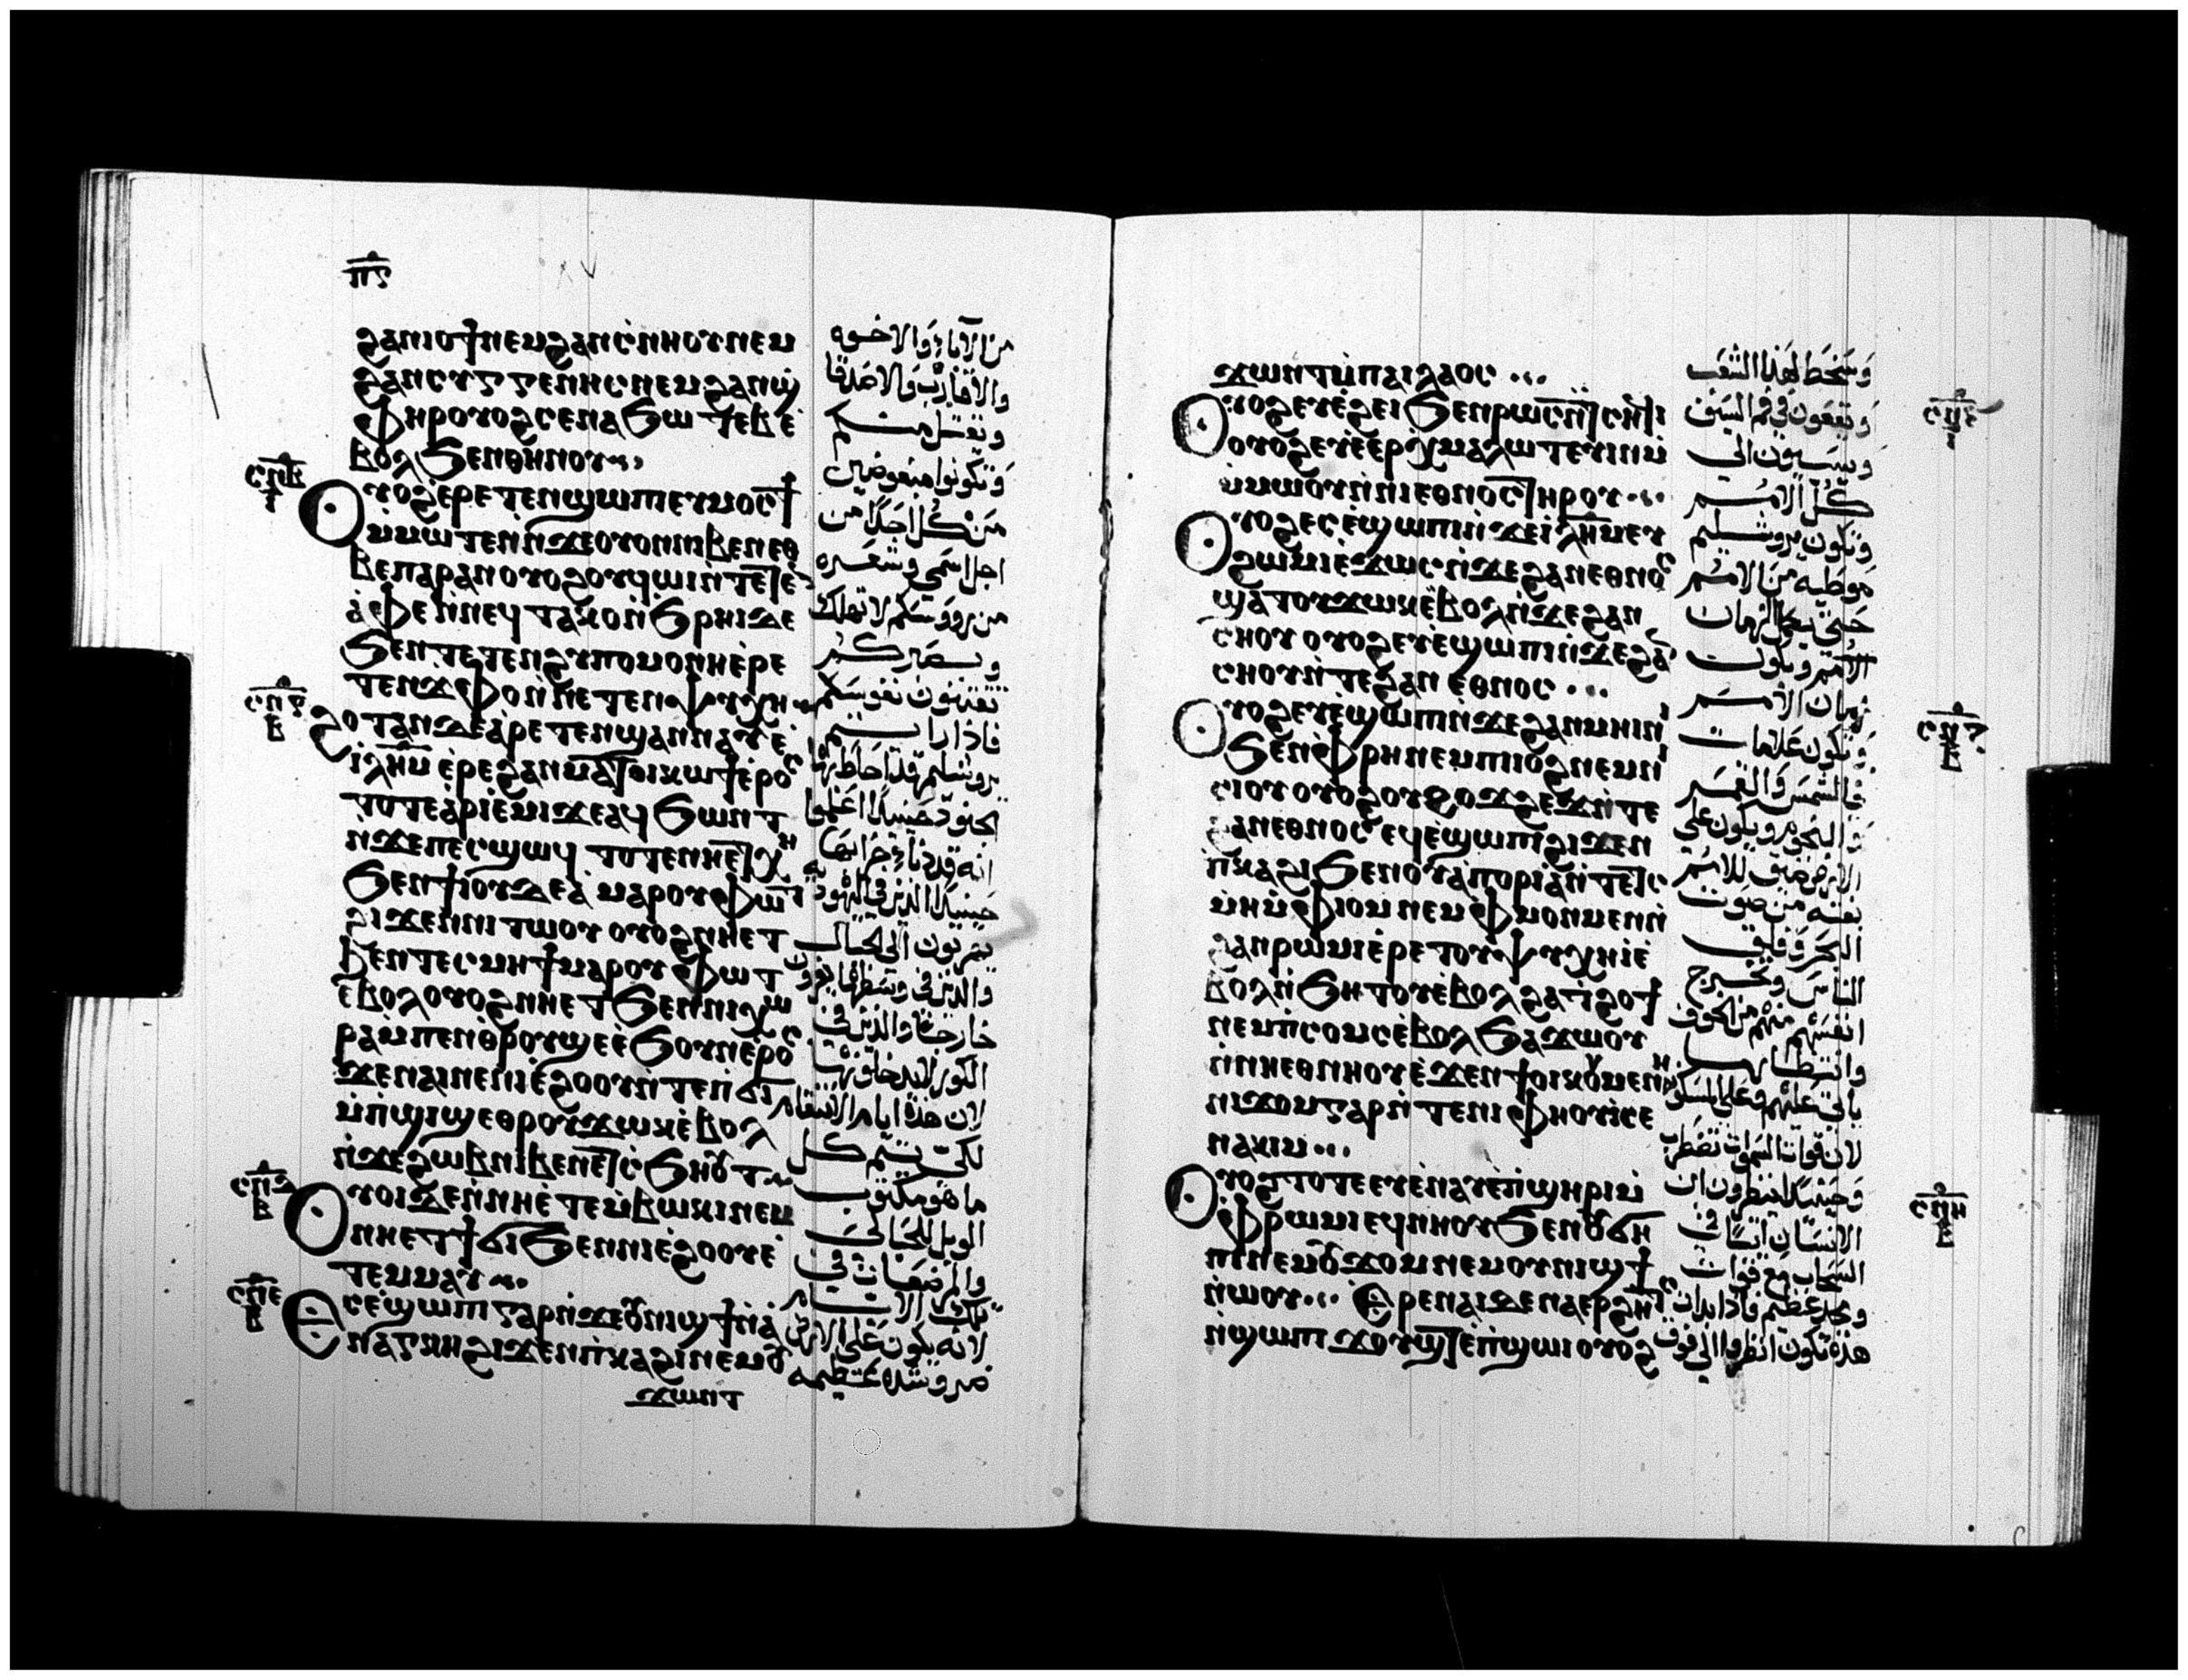 ⲡ̅ⲋ̅
ϩⲁⲛⲓⲟϯ ⲛⲉⲙ ϩⲁⲛⲥⲛⲏⲟⲩ ⲛⲉⲙ
ϩⲁⲛⲥⲩⲅⲅⲉⲛⲏⲥ ⲛⲉⲙ ϩⲁⲛϣ̀
ⲫⲏⲣ ⲟⲩⲟϩ ⲥⲉⲛⲁϧⲱⲧⲉⲃ ⲉ̀
ⲃⲟⲗ ϧⲉⲛ ⲑⲏⲛⲟⲩ
ⲟⲩⲟϩ ⲉ̀ⲣⲉⲧⲉⲛϣⲱⲡⲓ ⲉⲩⲙⲟⲥϯ
ⲙ̀ⲙⲱⲧⲉⲛ ⲛ̀ϫⲉ ⲟⲩⲟⲛ ⲛⲓⲃⲉⲛ ⲉⲑ
ⲃⲉ ⲡⲁⲣⲁⲛ ⲟⲩⲟϩ ⲟⲩϥⲱⲓ ⲛ̀ⲧⲉ
ⲁ̀ⲫⲉ ⲛ̀ⲛⲉϥⲧⲁⲕⲟ ⲛ̀ϧⲣⲏⲓ ⲇⲉ
ϧⲉⲛ ⲧⲉⲧⲉⲛϩⲩⲡⲟⲙⲟⲛⲏ ⲉ̀ⲣⲉ
ⲧⲉⲛϫⲫⲟ ⲛ̀ⲛⲉⲧⲉⲛⲯⲩⲭⲏ
ϩⲟⲧⲁⲛ ⲇⲉ ⲁⲣⲉⲧⲉⲛϣⲁⲛⲛⲁⲩ ⲉ̀
ⲓ̅ⲗ̅ⲏ̅ⲙ̅ ⲉ̀ⲣⲉ ϩⲁⲛⲙⲁⲧⲟⲓ ⲕⲱϯ ⲉ̀ⲣⲟⲥ
ⲧⲟⲧⲉ ⲁⲣⲓⲉ̀ⲙⲓ ϫⲉ ⲁϥϧⲱⲛⲧ
ⲛ̀ϫⲉ ⲡⲉⲥϣⲱϥ ⲧⲟⲧⲉ ⲛⲏⲉⲧⲭⲏ
ϧⲉⲛ ϯⲓⲟⲩⲇⲉⲁ̀ ⲙⲁⲣⲟⲩⲫⲱⲧ
ϩⲓϫⲉⲛ ⲛⲓⲧⲱⲟⲩ ⲟⲩⲟϩ ⲛⲏⲉⲧ
ϧⲉⲛ ⲧⲉⲥⲙⲏϯ ⲙⲁⲣⲟⲩⲫⲱⲧ
ⲉ̀ⲃⲟⲗ ⲟⲩⲟϩ ⲛⲏⲉⲧϧⲉⲛ ⲛⲓⲭⲱ
ⲣⲁ ⲙ̀ⲡⲉⲛⲑⲣⲟⲩϣⲉ ⲉ̀ϧⲟⲩⲛ ⲉ̀ⲣⲟⲥ
ϫⲉ ⲛⲁⲓ ⲛⲉ ⲛⲓⲉ̀ϩⲟⲟⲩ ⲛ̀ⲧⲉ ⲡ̀ϭⲓ
ⲙ̀ⲡ̀ϣⲓϣ ⲉⲑⲣⲟⲩϫⲱⲕ ⲉ̀ⲃⲟⲗ
ⲛ̀ϫⲉ ϩⲱⲃ ⲛⲓⲃⲉⲛ ⲉⲧⲥ̀ϧⲏⲟⲩⲧ
ⲟⲩⲟⲓ ⲇⲉ ⲛ̀ⲛⲏⲉ̀ⲧⲉⲙⲃⲱⲕⲓ ⲛⲉⲙ
ⲛⲏⲉⲧϯϭⲓ ϧⲉⲛ ⲛⲓⲉ̀ϩⲟⲟⲩ ⲉ̀
ⲧⲉⲙⲙⲁⲩ
ⲉⲥⲉ̀ϣⲱⲡⲓ ⲅⲁⲣ ⲛ̀ϫⲉ ⲟⲩⲛⲓϣϯ ⲛ̀ⲁ̀
ⲛⲁⲅⲕⲏ ϩⲓϫⲉⲛ ⲡ̀ⲕⲁϩⲓ ⲛⲉⲙ ⲟⲩ
ϫⲱⲛⲧ
من الآباء والاخوه
والاقارب والاصدقا
ويقتل منكم
وتكونوا مبغوضين
من كل احدا من
اجل اسمي وشعره
من رووسكم لا تهلك
وبصبركم
تقتنون نفوسكم
فاذا رايتم
يروشليم قد احاط بها
الجنود حينيدا اعلموا
انه قد دنا خرابها
حينيدا الذين في اليهوديه
يهربون الى الجبال
والذين في وسطها يفرون
خارجا والذين في
الكور لا يدخلونها
لان هذه ايام الانتقام
لكي يتم كل
ما هو مكتوب
الويل للحبالى
والمرضعات في
تلك الايام
لانه يكون على الارض
ضر وشده عظيمه
ⲥ̅ⲡ̅ⲇ̅
ⲃ
ⲥ̅ⲡ̅ⲉ̅
ϫⲱⲛⲧ ⲙ̀ⲡⲁⲓⲗⲁⲟⲥ
ⲟⲩⲟϩ ⲉⲩⲉ̀ϩⲉⲓ ϧⲉⲛ ⲣⲱⲥ ⲛ̀ⲧⲥⲏϥⲓ
ⲟⲩⲟϩ ⲉⲩⲉ̀ⲉⲣⲉⲭⲙⲁⲗⲱⲧⲉⲩⲓⲛ ⲙ̀
ⲙ̀ⲙⲱⲟⲩ ⲛ̀ⲛⲓⲉⲑⲛⲟⲥ ⲧⲏⲣⲟⲩ
ⲟⲩⲟϩ ⲉⲥⲉ̀ϣⲱⲡⲓ ⲛ̀ϫⲉ ⲓ̅ⲗ̅ⲏ̅ⲙ̅ ⲉⲩ
ϩⲱⲙⲓ ⲉ̀ϫⲱⲥ ⲛ̀ϫⲉ ϩⲁⲛⲉⲑⲛⲟⲥ
ϣⲁⲧⲟⲩϫⲱⲕ ⲉ̀ⲃⲟⲗ ⲛ̀ϫⲉ ϩⲁⲛ
ⲥⲏⲟⲩ ⲟⲩⲟϩ ⲉⲩⲉ̀ϣⲱⲡⲓ ⲛ̀ϫⲉ ϩⲁⲛ
ⲥⲏⲟⲩ ⲛ̀ⲧⲉ ϩⲁⲛⲉⲑⲛⲟⲥ
ⲟⲩⲟϩ ⲉⲩⲉ̀ϣⲱⲡⲓ ⲛ̀ϫⲉ ϩⲁⲛⲙⲏⲓⲛⲓ
ϧⲉⲛ ⲫ̀ⲣⲏ ⲛⲉⲙ ⲡⲓⲓⲟϩ ⲛⲉⲙ ⲛⲓ
ⲥⲓⲟⲩ ⲟⲩⲟϩ ⲟⲩϩⲟϫϩⲉϫ ⲛ̀ⲧⲉ
ϩⲁⲛⲉⲑⲛⲟⲥ ⲉϥⲉ̀ϣⲱⲡⲓ ϩⲓϫⲉⲛ
ⲡ̀ⲕⲁϩⲓ ϧⲉⲛ ⲟⲩⲁ̀ⲡⲟⲣⲓⲁ ⲛ̀ⲧⲉ ⲧⲥ
ⲙⲏ ⲙ̀ⲫⲓⲟⲙ ⲛⲉⲙ ⲫ̀ⲙⲟⲛⲙⲉⲛ ⲛ̀
ϩⲁⲛⲣⲱⲙⲓ ⲉ̀ⲣⲉ ⲧⲟⲩⲯⲩⲭⲏ ⲓ̀ ⲉ̀
ⲃⲟⲗ ⲛ̀ϧⲏⲧⲟⲩ ⲉ̀ⲃⲟⲗ ϩⲁ ⲧ̀ϩⲟϯ
ⲛⲉⲙ ⲡ̀ⲥⲟⲙⲥ ⲉ̀ⲃⲟⲗ ϧⲁϫⲱⲟⲩ
ⲛ̀ⲛⲏⲉⲑⲛⲏⲟⲩ ⲉ̀ϫⲉⲛ ϯⲟⲓⲕⲟⲩⲙⲉⲛⲏ
ⲛⲓϫⲟⲙ ⲅⲁⲣ ⲛ̀ⲧⲉ ⲛⲓⲫⲏⲟⲩⲓ̀ ⲥⲉ
ⲛⲁⲕⲓⲙ
ⲟⲩⲟϩ ⲧⲟⲧⲉ ⲉⲩⲉ̀ⲛⲁⲩ ⲉ̀ⲡ̀ϣⲏⲣⲓ ⲙ̀
ⲫ̀ⲣⲱⲙⲓ ⲉϥⲛⲏⲟⲩ ϧⲉⲛ ⲟⲩϭⲏ
ⲡⲓ ⲛⲉⲙ ⲟⲩϫⲟⲙ ⲛⲉⲙ ⲟⲩⲛⲓϣϯ
ⲛ̀ⲱⲟⲩ ⲉⲣⲉ ⲛⲁⲓ ⲇⲉ ⲛⲁⲉⲣϩⲏⲧⲥ
ⲛ̀ϣⲱⲡⲓ ϫⲟⲩϣⲧ ⲉ̀ⲡ̀ϣⲱⲓ ⲟⲩⲟϩ
وسخط لهذا الشعب
ويقعون في فم السيف
ويسبون الى
كل الامم
وتكون يروشليم
موطيه من الامم
حتى يكمل ازمان
الامم ويكون
زمان الامم
وتكون علامات
في الشمس والقمر
والنجوم ويكون على
الارض ضيق للامم
بغته من صوت
البحر وقلق
الناس وتخرج
انفسهم منهم من الخوف
وانتظار ما
ياتي عليهم وعلى المسكونه
لان قوات السموات تضطرب
وحينيدا ينظرون ابن
الانسان اتيا في
السحاب مع قوات
ومجد عظيم فاذا بدات
هذه تكون انظروا الى فوق
ⲥ̅ⲡ̅ⲏ̅